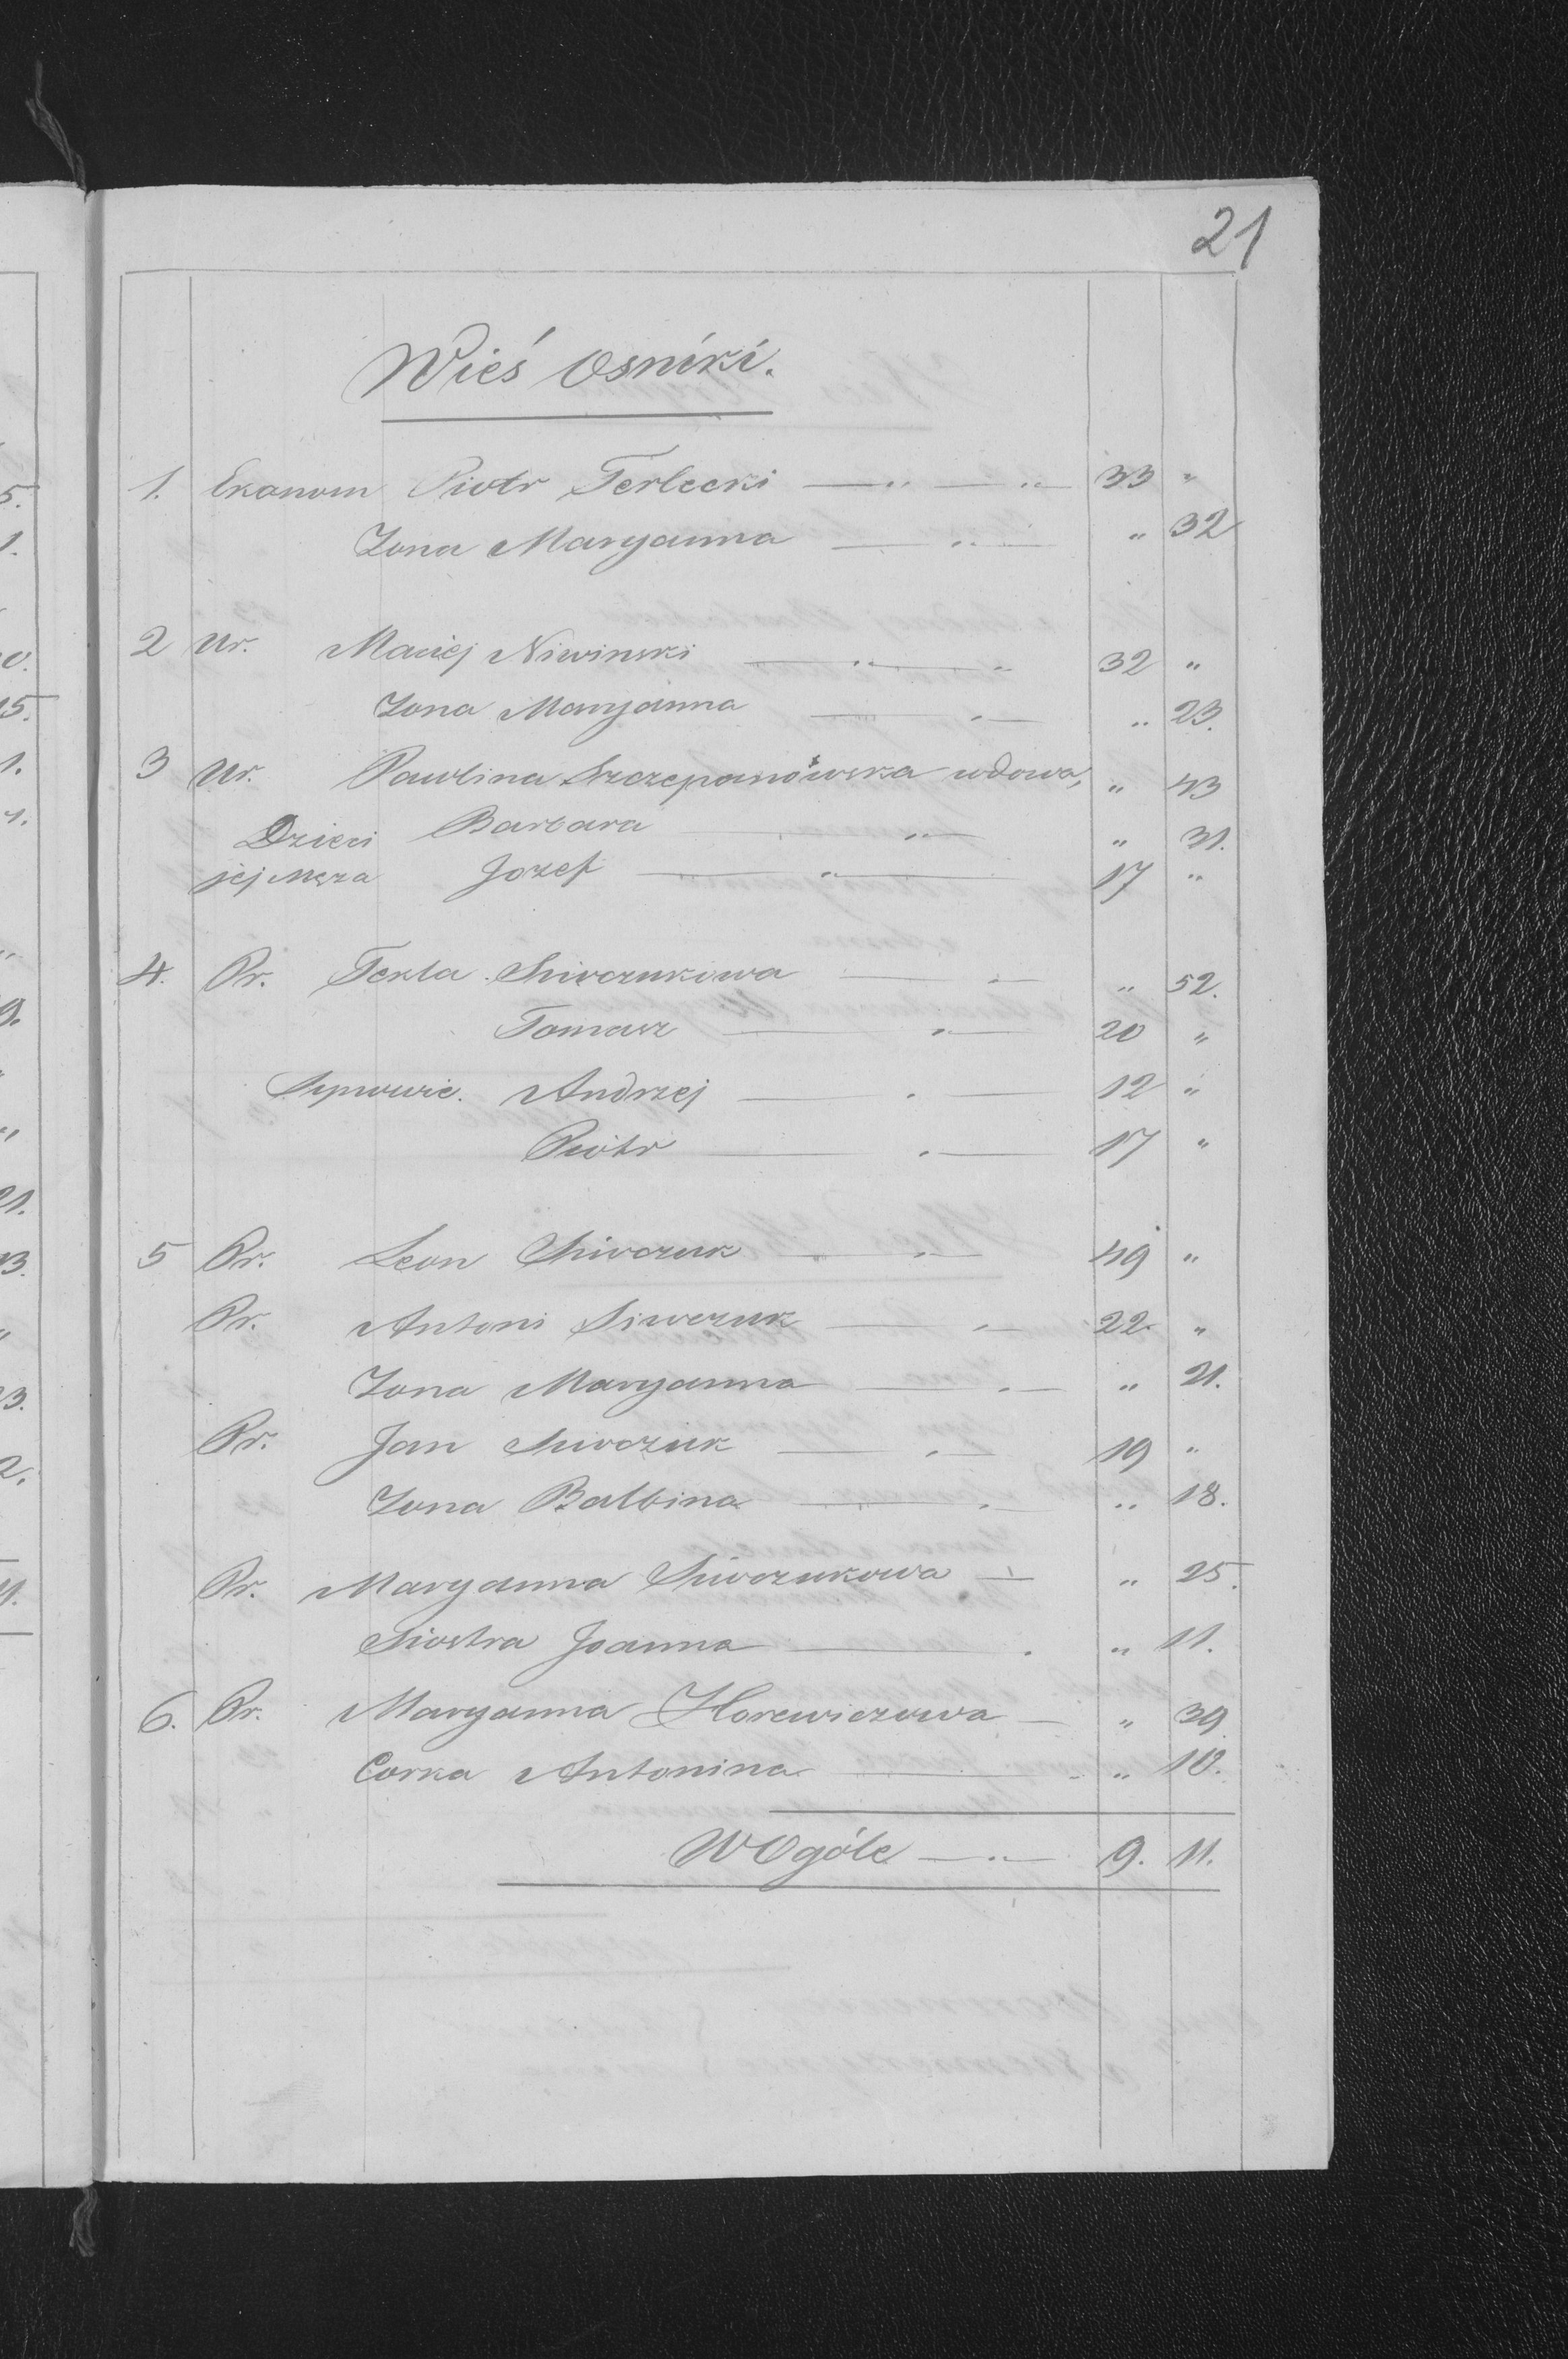 21
Wieś Osniki.
1. Ekonom Piotr Terlecki — „ — „ — 33 „
Zona Maryanna — „ — „ 32
2 Ur. Maciej Niwinski — „ — „ 32 „
Zona Maryanna — „ — „ 23.
3 Ur. Pawlina Szczepanówska wdowa, „ 43
Dzieci Barbara — „ — „ 31.
jej męza Jozef — „ — 17 „
4. Pr. Tekla Siwczukowa — „ — „ 52.
Tomasz — „ — 20 „
Synowie. Andrzej — „ — 12 „
Piotr — „ — 17 „
5 Pr. Leon Siwczuk — „ — 49 „
Pr. Antoni Siwczuk — „ — 22. „
Zona Maryanna — „ — „ 21.
Pr. Jan Siwczuk — „ — 19 „
Zona Balbina — „ — „ 18.
Pr. Maryanna Siwczukowa — „ 25.
Siostra Joanna — . „ 11.
6. Pr. Maryanna Horewiczowa — „ 39
Corka Antonina — „ 18.
W Ogóle — „ — 9. 11.